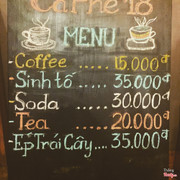 Cà Phê 18
MENU
-Coffee ..... 15.000đ
-Sinh tố ..... 35.000đ
-Soda ..... 30.000đ
-Tea ..... 20.000đ
-Ép Trái Cây.... 35.000đ